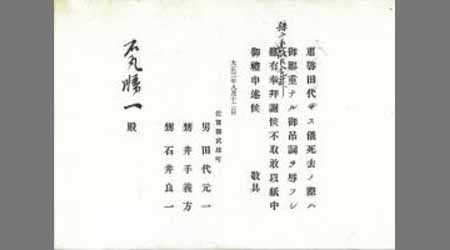 恵啓田代ギス儀死去ノ際ハ
御鄭重ナル御吊詞ヲ辱フシ
難有奉拝謝候不取敢以紙中
御禮申述候 敬具
大正三年八月十二日
佐賀縣武雄町
男 田代元一
甥 井手義方
甥 石井良一
石丸勝一 殿